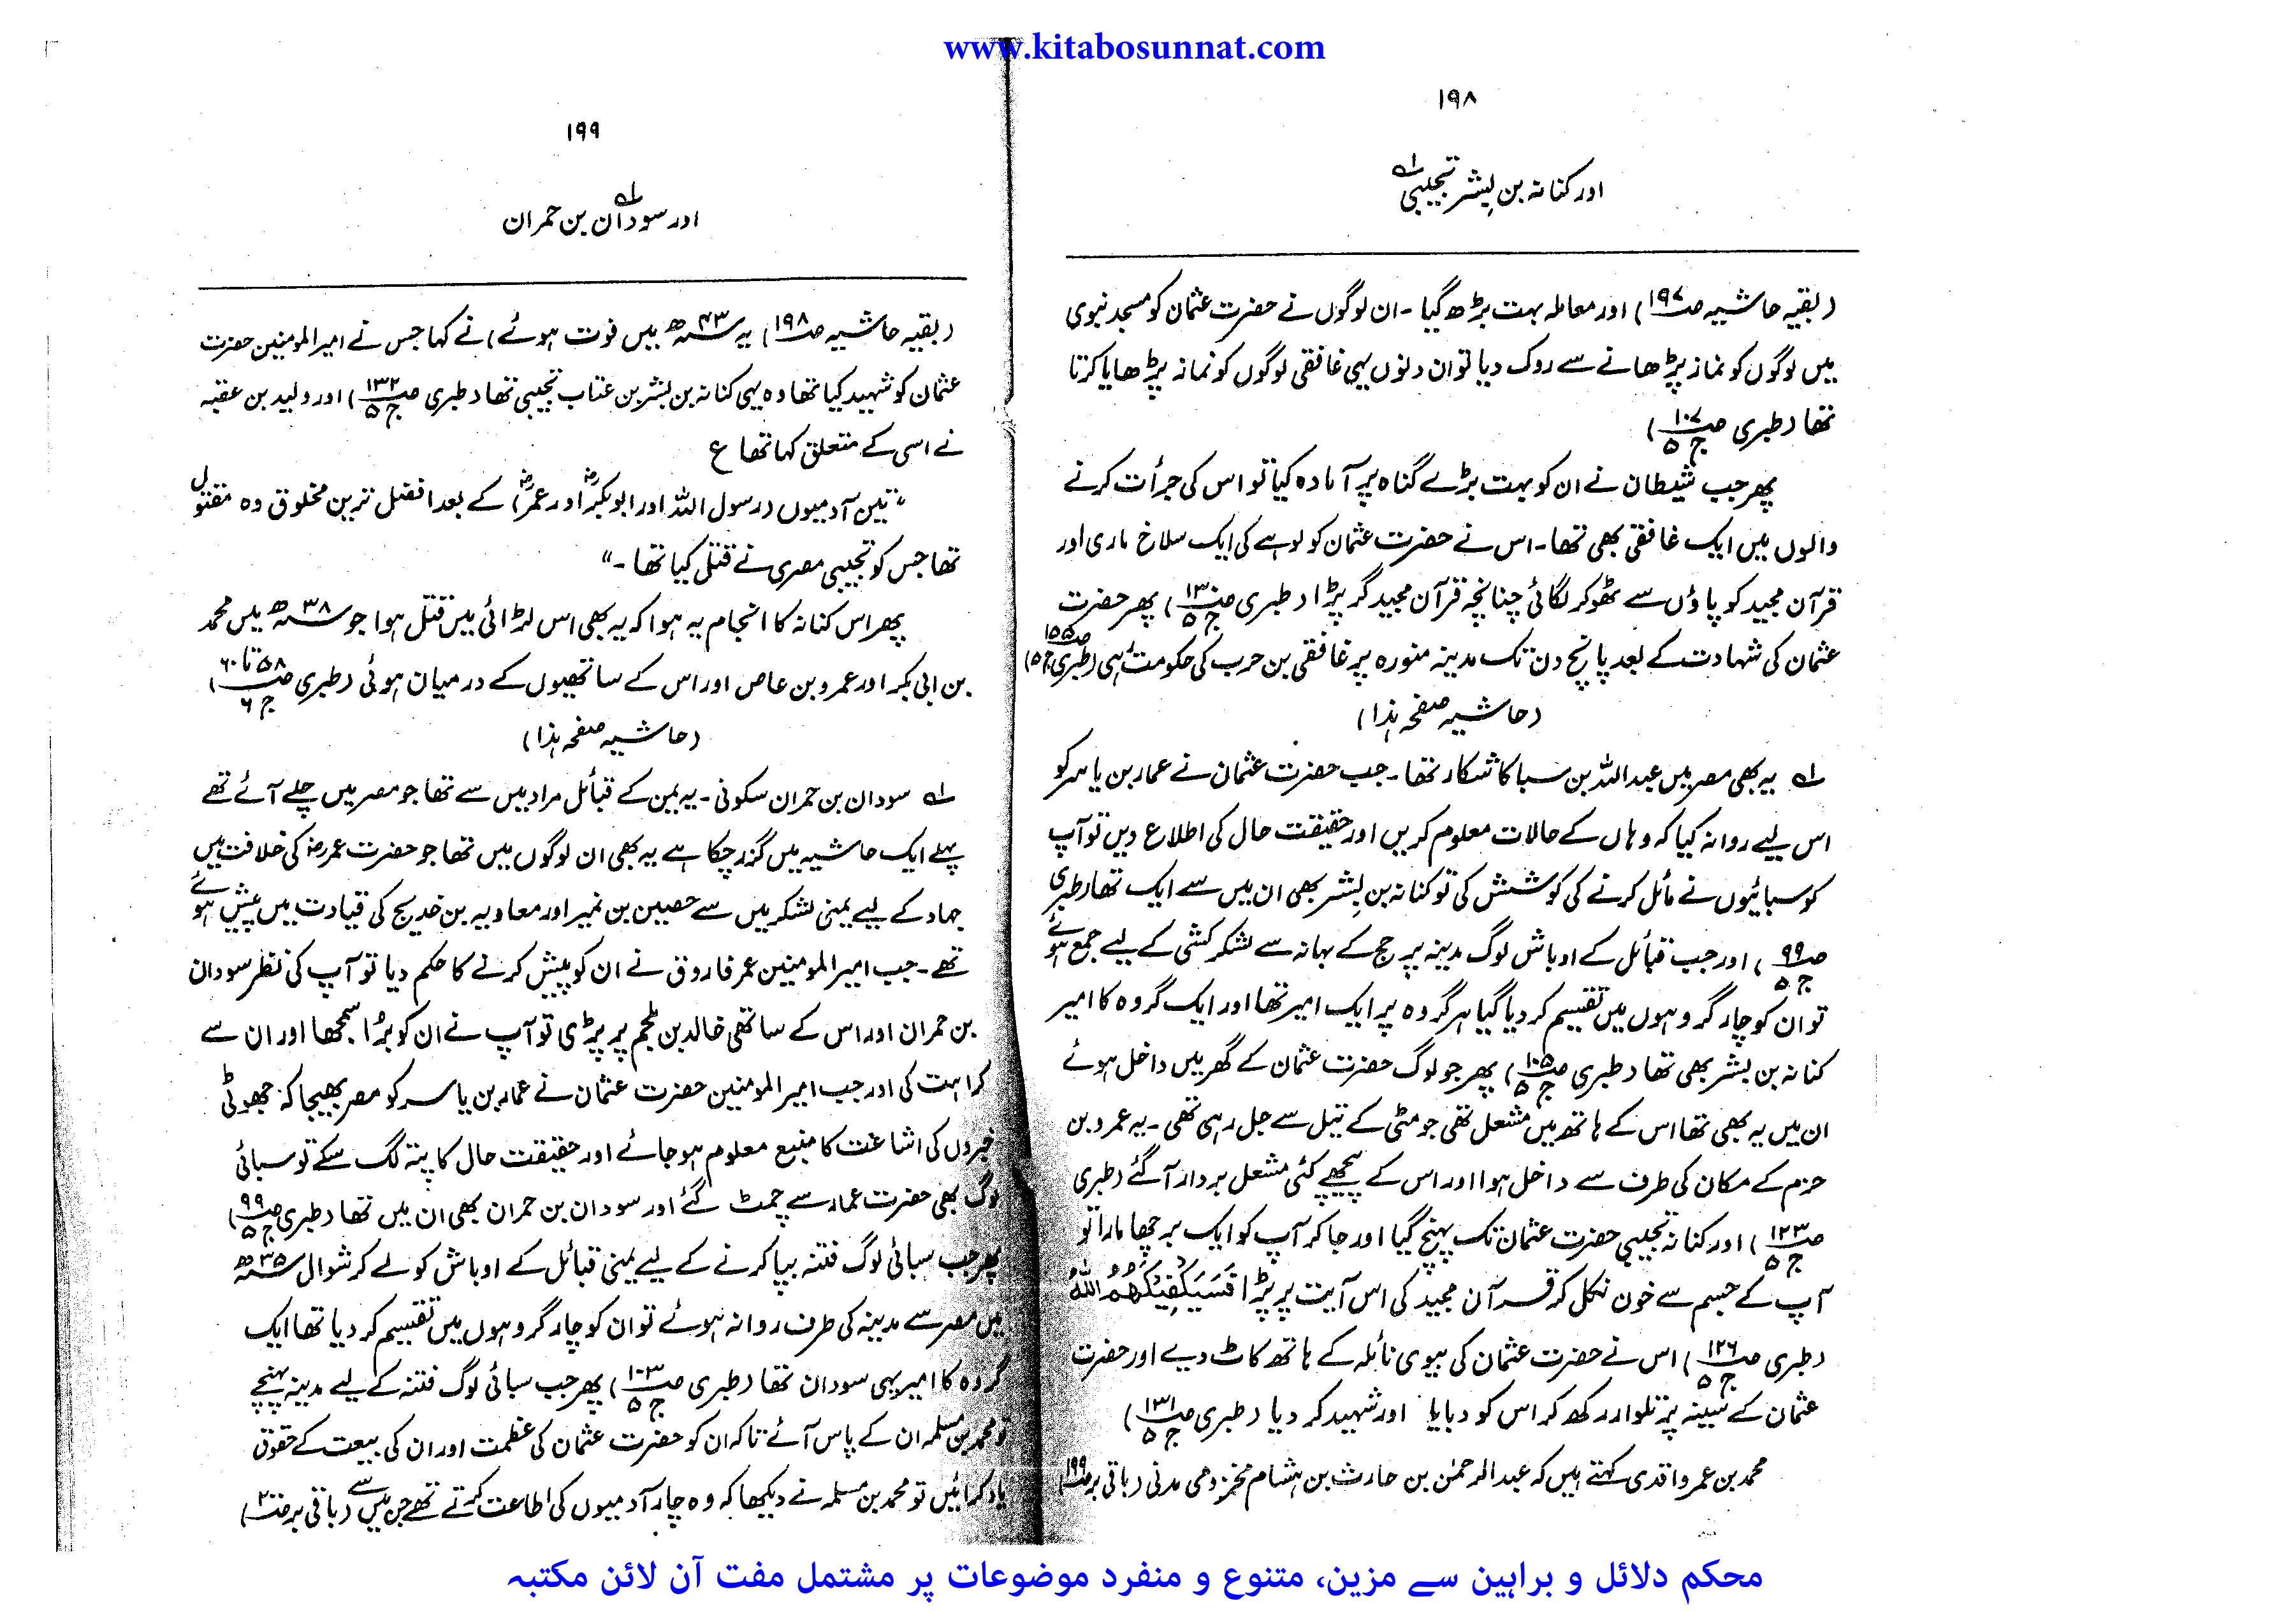 www.kitabosunnat.com
۱۹۸
اور کنانہ بن بِشر تجیبی ؎۱
(بقیہ حاشیہ ص۱۹۷) اور معاملہ بہت بڑھ گیا ۔ ان لوگوں نے حضرت عثمان کو مسجد نبوی
میں لوگوں کو نماز پڑھانے سے روک دیا تو ان دنوں یہی غافقی لوگوں کو نماز پڑھایا کرتا
تھا (طبری ص۱۰۷ ج۵)
پھر جب شیطان نے ان کو بہت بڑے گناہ پر آمادہ کیا تو اس کی جرأت کرنے
والوں میں ایک غافقی بھی تھا ۔ اس نے حضرت عثمان کو لوہے کی ایک سلاخ ماری اور
قرآن مجید کو پاؤں سے ٹھوکر لگائی چنانچہ قرآن مجید گر پڑا (طبری ص۱۳۰ ج۵) پھر حضرت
عثمان کی شہادت کے بعد پانچ دن تک مدینہ منورہ پر غافقی بن حرب کی حکومت رہی (طبری ص۱۵۵ ج۵)
(حاشیہ صفحہ ہذا)
؎۱ یہ بھی مصر میں عبداللہ بن سبا کا شکار تھا ۔ جب حضرت عثمان نے عمار بن یاسر کو
اس لیے روانہ کیا کہ وہاں کے حالات معلوم کریں اور حقیقت حال کی اطلاع دیں تو آپ
کو سبائیوں نے مائل کرنے کی کوشش کی تو کنانہ بن بِشر بھی ان میں سے ایک تھا (طبری
ص۹۹ ج۵) اور جب قبائل کے اوباش لوگ مدینہ پر حج کے بہانہ سے لشکر کشی کے لیے جمع ہوئے
تو ان کو چار گروہوں میں تقسیم کر دیا گیا ہر گروہ پر ایک امیر تھا اور ایک گروہ کا امیر
کنانہ بن بشر بھی تھا (طبری ص۱۰۵ ج۵) پھر جو لوگ حضرت عثمان کے گھر میں داخل ہوئے
ان میں یہ بھی تھا اس کے ہاتھ میں مشعل تھی جو مٹی کے تیل سے جل رہی تھی ۔ یہ عمرو بن
حزم کے مکان کی طرف سے داخل ہوا اور اس کے پیچھے کئی مشعل بردار آ گئے (طبری
ص۱۲۳ ج۵) اور کنانہ تجیبی حضرت عثمان تک پہنچ گیا اور جا کر آپ کو ایک برچھا مارا تو
آپ کے جسم سے خون نکل کر قرآن مجید کی اس آیت پر پڑا فَسَيَكْفِيْكَهُمُ اللّٰهُ
(طبری ص۱۲۶ ج۵) اس نے حضرت عثمان کی بیوی نائلہ کے ہاتھ کاٹ دیے اور حضرت
عثمان کے سینہ پر تلوار رکھ کر اس کو دبایا اور شہید کر دیا (طبری ص۱۳۱ ج۵)
محمد بن عمر واقدی کہتے ہیں کہ عبدالرحمٰن بن حارث بن ہشام مخزومی مدنی (باقی بر ص۱۹۹)
۱۹۹
اور سودان بن حمران ؎۱
(بقیہ حاشیہ ص۱۹۸) یہ ۴۳ھ میں فوت ہوئے) نے کہا جس نے امیر المومنین حضرت
عثمان کو شہید کیا تھا وہ یہی کنانہ بن بشر بن عتاب تجیبی تھا (طبری ص۱۳۲ ج۵) اور ولید بن عقبہ
نے اسی کے متعلق کہا تھا ع
” تین آدمیوں (رسول اللہ اور ابوبکرؓ اور عمرؓ) کے بعد افضل ترین مخلوق وہ مقتول
تھا جس کو تجیبی مصری نے قتل کیا تھا ۔“
پھر اس کنانہ کا انجام یہ ہوا کہ یہ بھی اس لڑائی میں قتل ہوا جو ۳۸ھ میں محمد
بن ابی بکر اور عمرو بن عاص اور اس کے ساتھیوں کے درمیان ہوئی (طبری ص۵۸ تا ۶۰ ج۶)
(حاشیہ صفحہ ہذا)
؎۱ سودان بن حمران سکونی ۔ یہ یمن کے قبائل مراد میں سے تھا جو مصر میں چلے آئے تھے
پہلے ایک حاشیہ میں گزر چکا ہے یہ بھی ان لوگوں میں تھا جو حضرت عمرؓ کی خلافت میں
جہاد کے لیے یمنی لشکر میں سے حصین بن نمیر اور معاویہ بن خدیج کی قیادت میں پیش ہوئے
تھے ۔ جب امیر المومنین عمر فاروق نے ان کو پیش کرنے کا حکم دیا تو آپ کی نظر سودان
بن حمران اور اس کے ساتھی خالد بن ملجم پر پڑی تو آپ نے ان کو بُرا سمجھا اور ان سے
کراہت کی اور جب امیر المومنین حضرت عثمان نے عمار بن یاسر کو مصر بھیجا کہ جھوٹی
خبروں کی اشاعت کا منبع معلوم ہو جائے اور حقیقت حال کا پتہ لگ سکے تو سبائی
لوگ بھی حضرت عمار سے چمٹ گئے اور سودان بن حمران بھی ان میں تھا (طبری ص۹۹ ج۵)
پھر جب سبائی لوگ فتنہ بپا کرنے کے لیے یمنی قبائل کے اوباش کو لے کر شوال ۳۵ھ
میں مصر سے مدینہ کی طرف روانہ ہوئے تو ان کو چار گروہوں میں تقسیم کر دیا تھا ایک
گروہ کا امیر یہی سودان تھا (طبری ص۱۰۳ ج۵) پھر جب سبائی لوگ فتنہ کے لیے مدینہ پہنچے
تو محمد بن مسلمہ ان کے پاس آئے تاکہ ان کو حضرت عثمان کی عظمت اور ان کی بیعت کے حقوق
یاد کرائیں تو محمد بن مسلمہ نے دیکھا کہ وہ چار آدمیوں کی اطاعت کرتے تھے جن میں سے (باقی بر ص۲۰۰)
محکم دلائل و براہین سے مزین، متنوع و منفرد موضوعات پر مشتمل مفت آن لائن مکتبہ